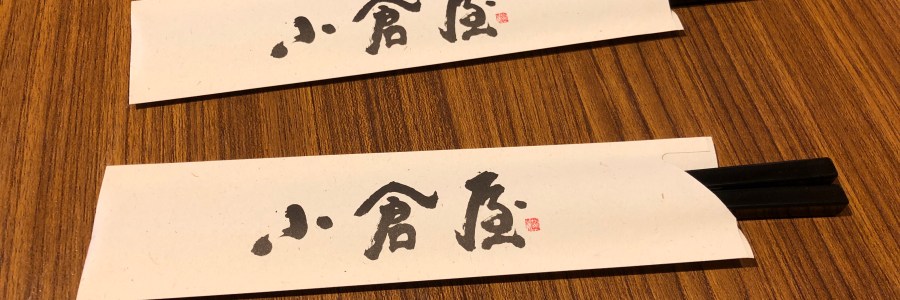 小倉屋
小倉屋